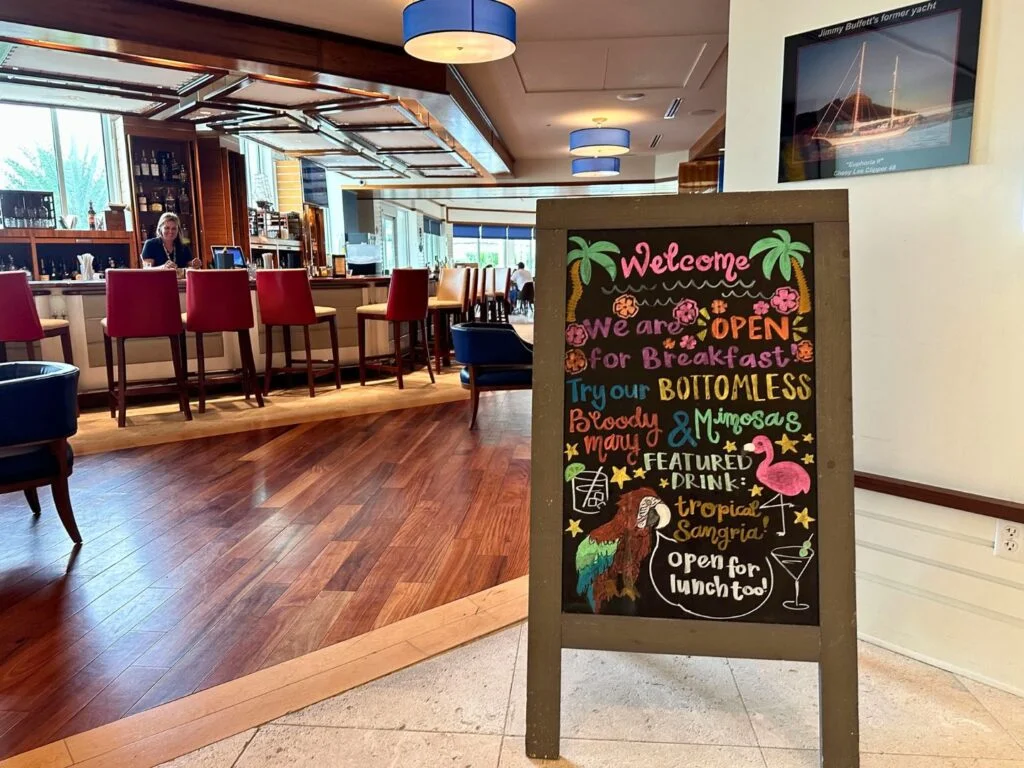 Jimmy Buffett's former yacht
"Euphoria II"
Cheoy Lee Clipper 48
Welcome
We are OPEN
for Breakfast!
Try our BOTTOMLESS
Bloody
mary & Mimosas
FEATURED
DRINK:
tropical
Sangria!
Open for
lunch too!